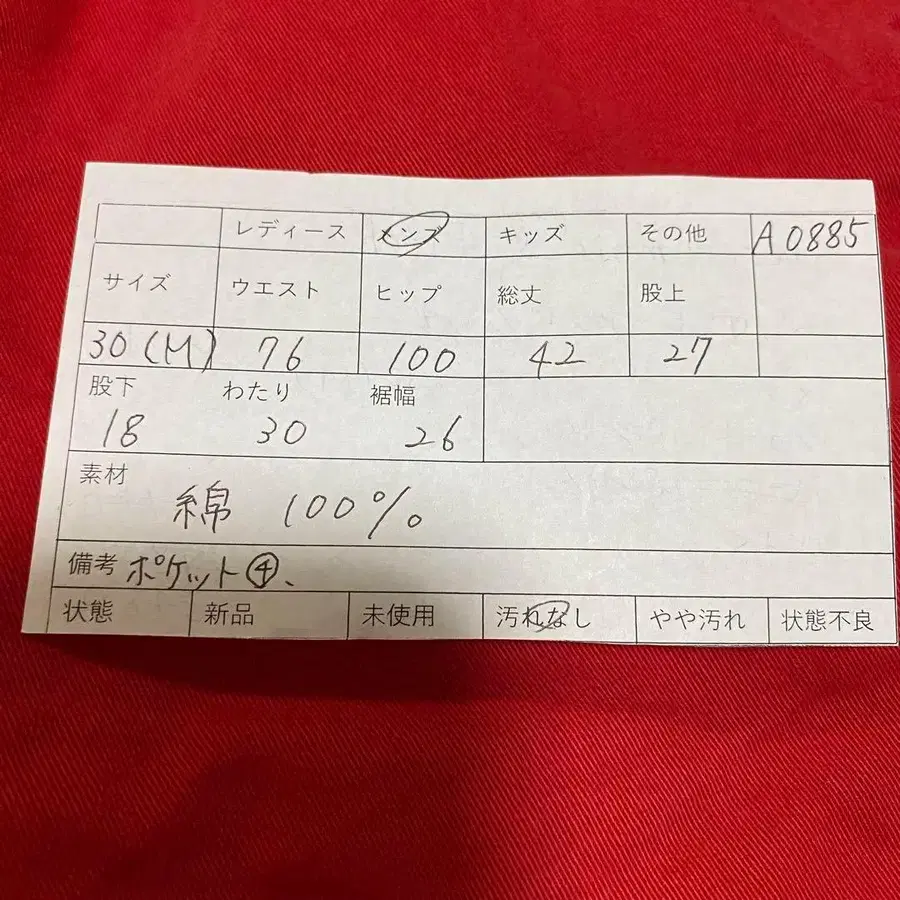 レディース メンズ キッズ その他 A0885
サイズ ウエスト ヒップ 総丈 股上
30(M) 76 100 42 27
股下 わたり 裾幅
18 30 26
素材
綿 100%
備考 ポケット④、
状態 新品 未使用 汚れなし やや汚れ 状態不良